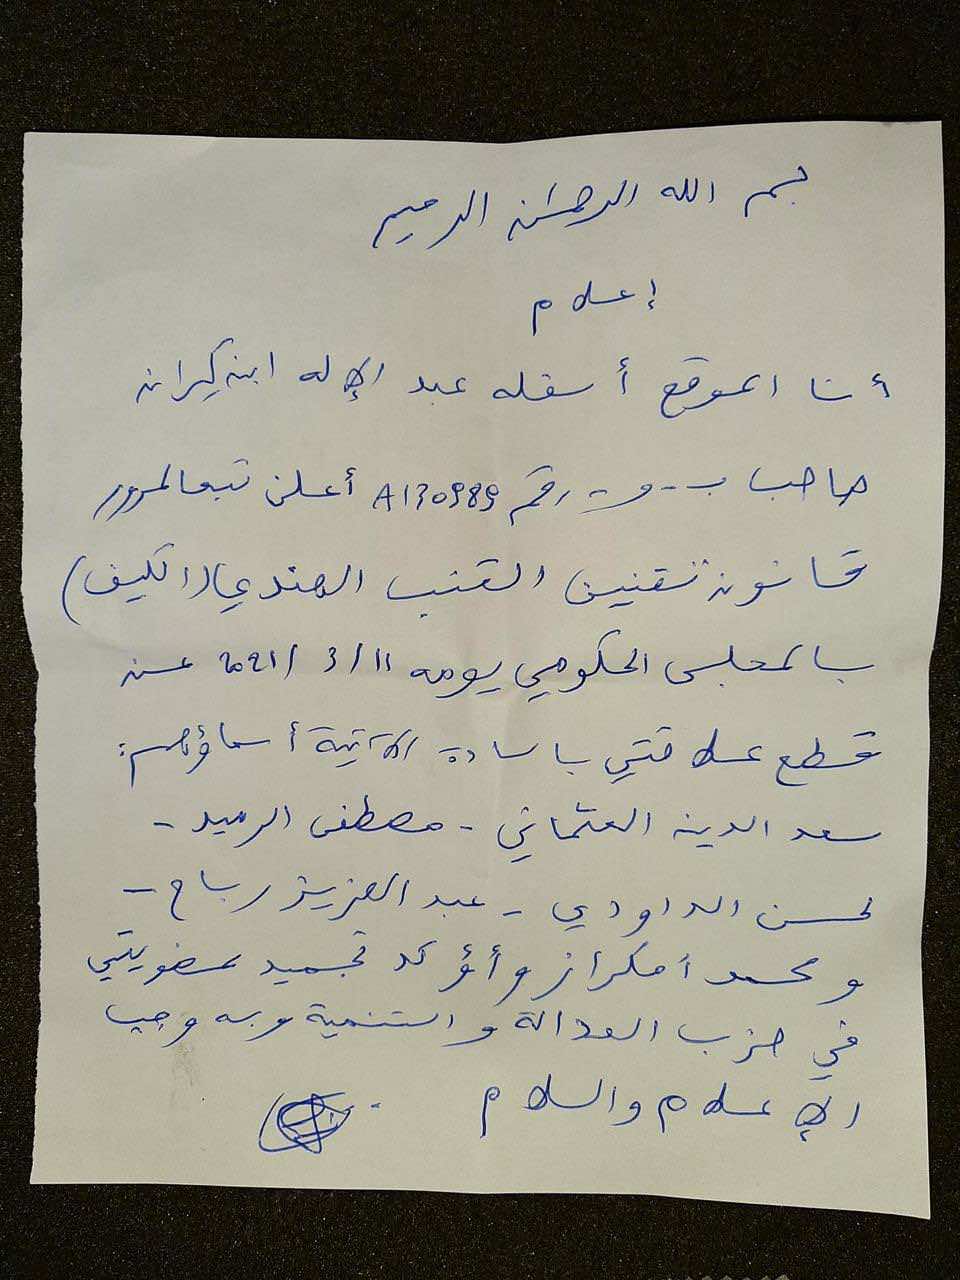 بسم الله الرحمن الرحيم
إعلام
أنا الموقع أسفله عبد الإله ابن كيران
صاحب ب.و. رقم A130989 أعلن تبعا لمرور
قانون تقنين القنب الهندي (الكيف)
بالمجلس الحكومي يومه 11/3/2021 عن
قطع علاقتي بالسادة الآتية أسماؤهم:
سعد الدين العثماني - مصطفى الرميد -
لحسن الداودي - عبد العزيز رباح -
و محمد أمكراز وأؤكد تجميد عضويتي
في حزب العدالة والتنمية وبه وجب
الإعلام والسلام